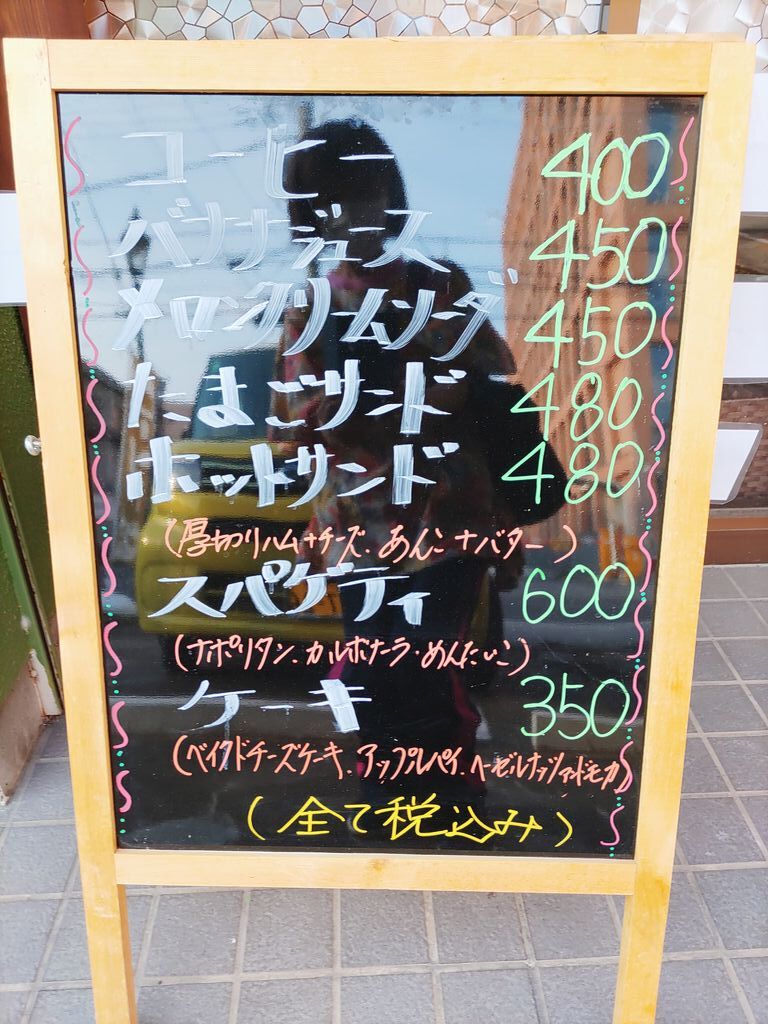 コーヒー 400
バナナジュース 450
メロンクリームソーダ 450
たまごサンド 480
ホットサンド 480
(厚切りハム+チーズ、あんこ+バター)
スパゲティ 600
(ナポリタン、カルボナーラ・めんたいこ)
ケーキ 350
(ベイクドチーズケーキ、アップルパイ、ヘーゼルナッツアンドモカ)
(全て税込み)